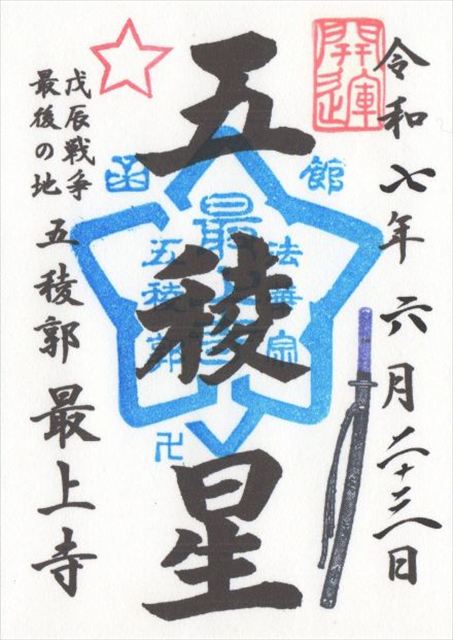 開運
令和七年六月二十三日
五稜星
函館
最上寺
法華宗
五稜郭
卍
戊辰戦争
最後の地
五稜郭 最上寺